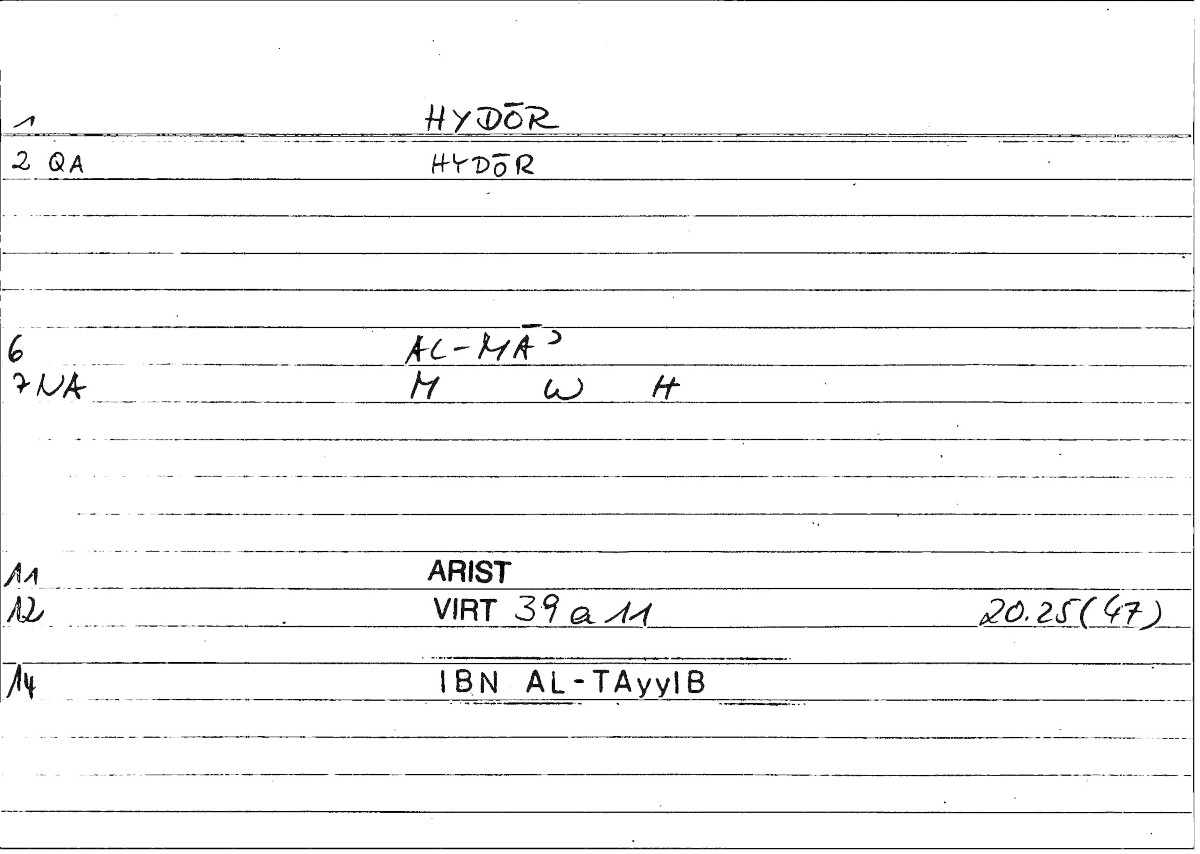 1 HYDŌR
2 QA HYDŌR
6 AL-MĀʾ
7 NA M W H
11 ARIST
12 VIRT 39 a 11 20.25(47)
14 IBN AL-TAyyIB